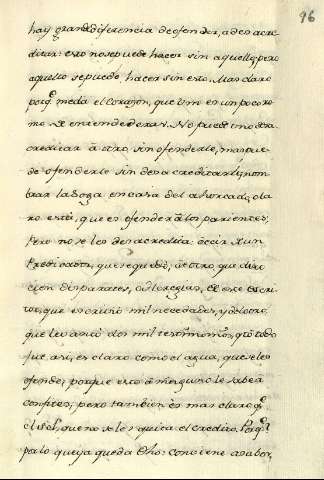 96
hay gran diferencia de ofender, a desacre
ditar: esto no se puede hacer sin aquello, pero
aquello se puede hacer sin esto. Mas claro
el corazon, que Vm es un poco ro
mo de entendederas. No puede uno desa
creditar à otro, sin ofenderle, mas pue
de ofenderle sin desacreditarle; nom
brar la soga en casa del ahorcado, cla
ro està, que es ofender à los parientes;
Pero no se los desacredita: decir de un
Predicador, que se quedò, de otro, que dixo
cien disparates, ò de ese escri
tor, que escriviò mil necedades, y de otro,
que levantò dos mil testimonios, todo
fue asi, es claro como el agua, que se les
ofende, porque esto à ninguno le sabe à
confites; pero tambien es mas claro q.e
el Sol, que no se les quita el credito. Porq.e
por lo que ya queda dho: conviene à saber,